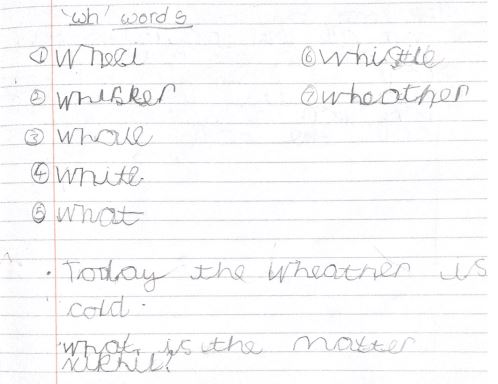 'wh' words
① Wheel
② whisker
③ whale
④ White
⑤ What
⑥ whistle
⑦ wheather
. Today the wheather is
cold.
What is the matter
Nikhil?